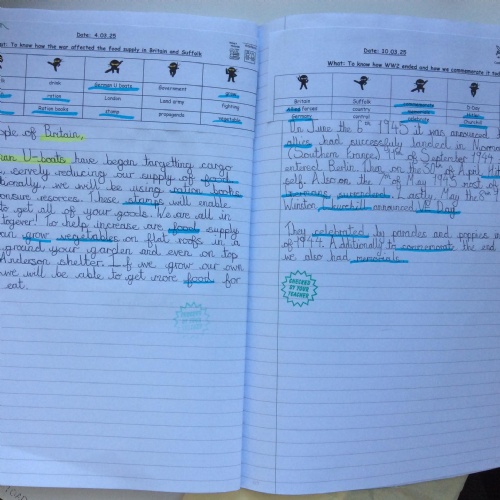 Date: 4.03.25
at: To know how the war affected the food supply in Britain and Suffolk
drink
German U boats
Government
grow
ration
London
Land army
fighting
Ration books
stamp
propaganda
vegetable
ople of Britain,
man U-boats have began targetting cargo
servely reducing our supply of food
ionally, we will be using ration books
onsure resorces. These stamps will enable
to get all of your goods. We are all in
together! To help increase are food supply
can grow vegetables on flat roofs in a
ground your garden and even on top
Anderson shelter. If we grow our own
we will be able to get more food for
eat.
CHECKED BY YOUR TEACHER
Date: 10.03.25
What: To know how WW2 ended and how we commemorate it
Britain
Suffolk
commemorate
D Day
Allied forces
country
Surrender
Hitler
Germany
control
celebrate
Churchill
On June the 6th 1945 it was announced
allies had successfully landed in Norman
(Southern France)
of September 1944
entered Berlin then on the 30th of April Hit
self. Also on the
of May 1945 most of
Germans surrendered. Lastly May the 8th
Winston churchill announced VE Day
They celebrated by parades and poppies
of 1944. Additionally to commemorate the end
we also had memorials
CHECKED BY YOUR TEACHER